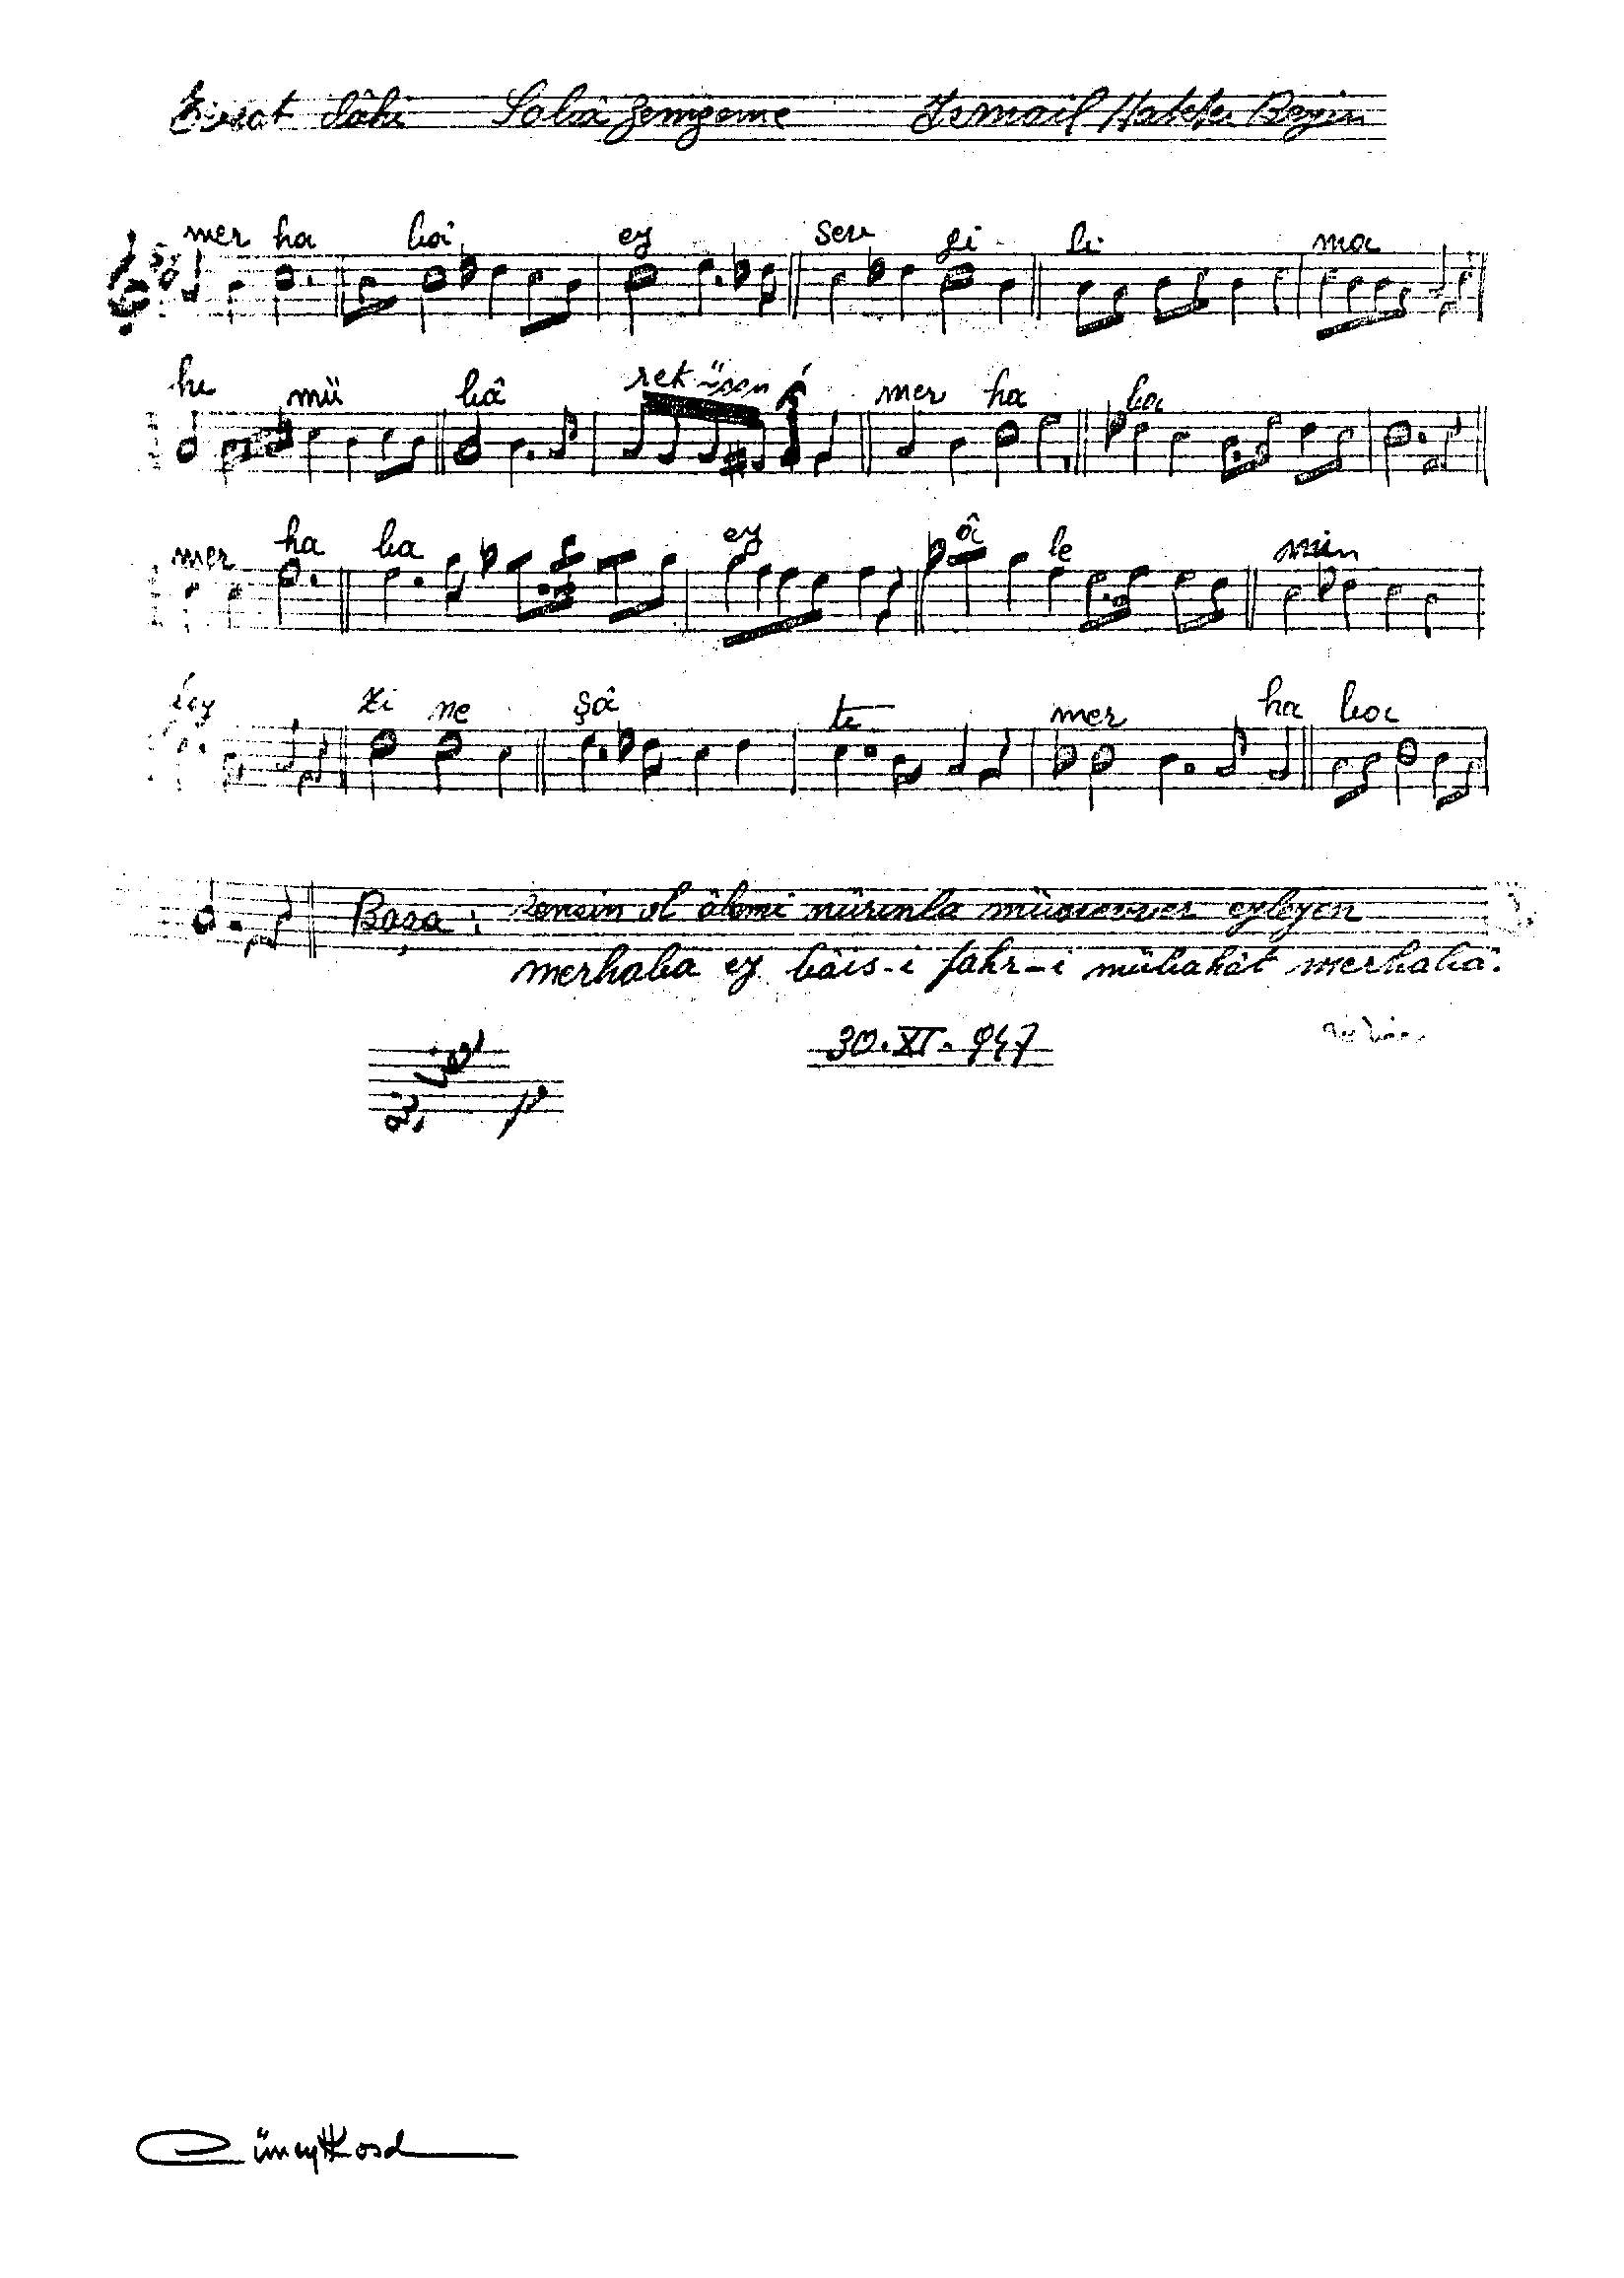 İsmail Hakkı Beyin
mer ha ba ey sev gi li ma
hı mü bâ rek mer ha ba
mer ha ba ey â le min
zi ne şâ tı mer ha ba
Başa : sensin ol âlemi nûrunla münevver eyleyen
merhaba ey bâis-i fahr-i mübahât merhabâ.
30.XI.947